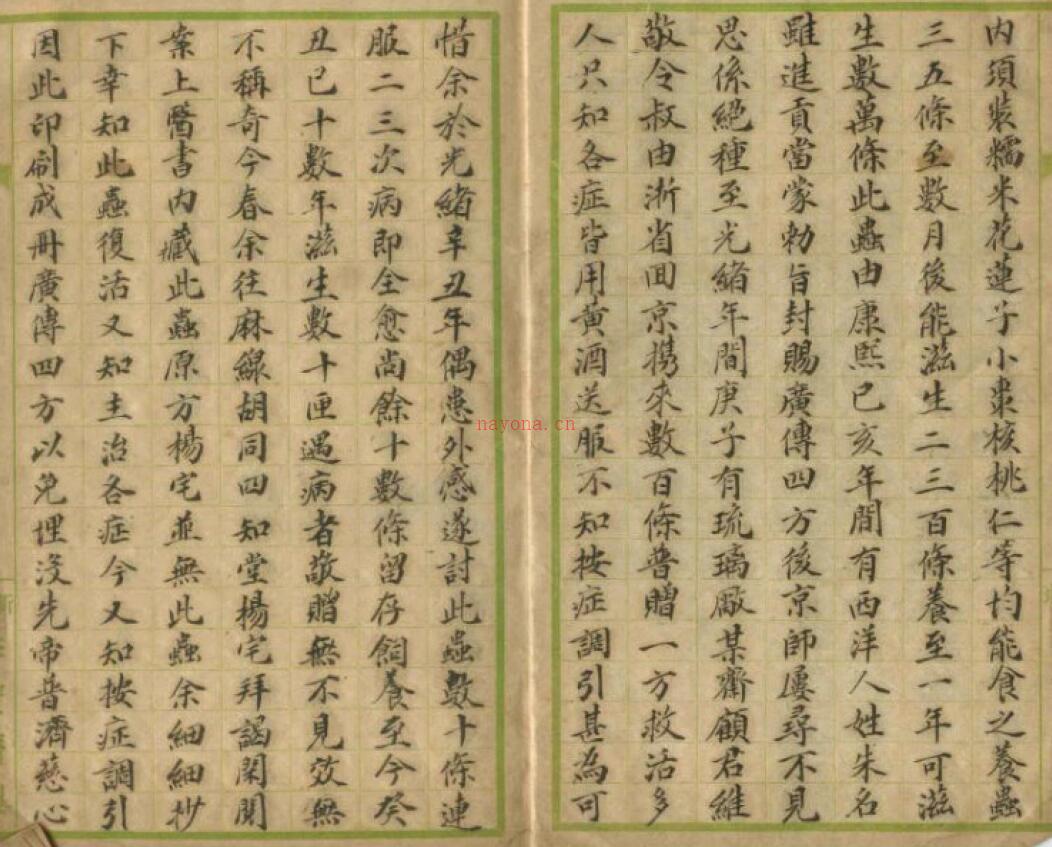 内須裝糯米花蓮子小棗核桃仁等均能食之養蟲
三五條至數月後能滋生二三百條養至一年可滋
生數萬條此蟲由康熙己亥年間有西洋人姓朱名
雖進貢當蒙勅旨封賜廣傳四方後京師屢尋不見
思係絕種至光緒年間庚子有琉璃廠某齋顧君維
敬令叔由浙省回京携來數百條普贈一方救活多
人只知各症皆用黃酒送服不知按症調引甚為可
惜余於光緒辛丑年偶患外感遂討此蟲數十條連
服二三次病即全愈尚餘十數條留存飼養至今癸
丑已十數年滋生數十匣遇病者敬贈無不見效無
不稱奇今春余往麻線胡同四知堂楊宅拜謁閑閱
案上醫書內藏此蟲原方楊宅並無此蟲余細細抄
下幸知此蟲復活又知主治各症今又知按症調引
因此印刷成冊廣傳四方以免埋沒先帝普濟慈心
nayona.cn